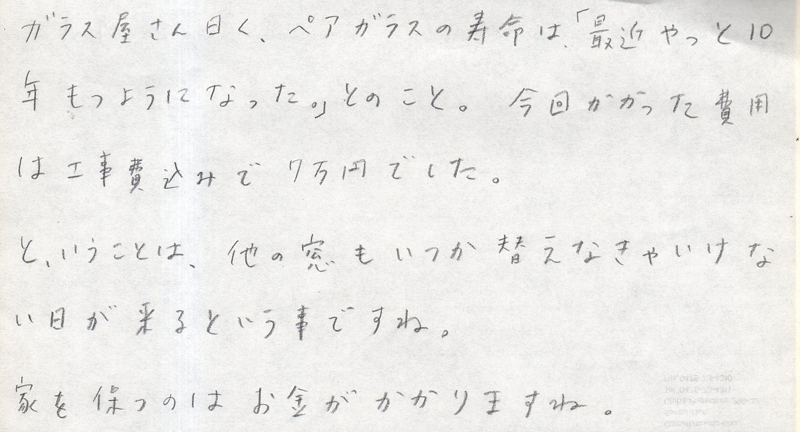 ガラス屋さん曰く、ペアガラスの寿命は、「最近やっと10
年もつようになった。」とのこと。 今回かかった費用
は工事費込みで7万円でした。
と、いうことは、他の窓もいつか替えなきゃいけな
い日が来るという事ですね。
家を保つのはお金がかかりますね。